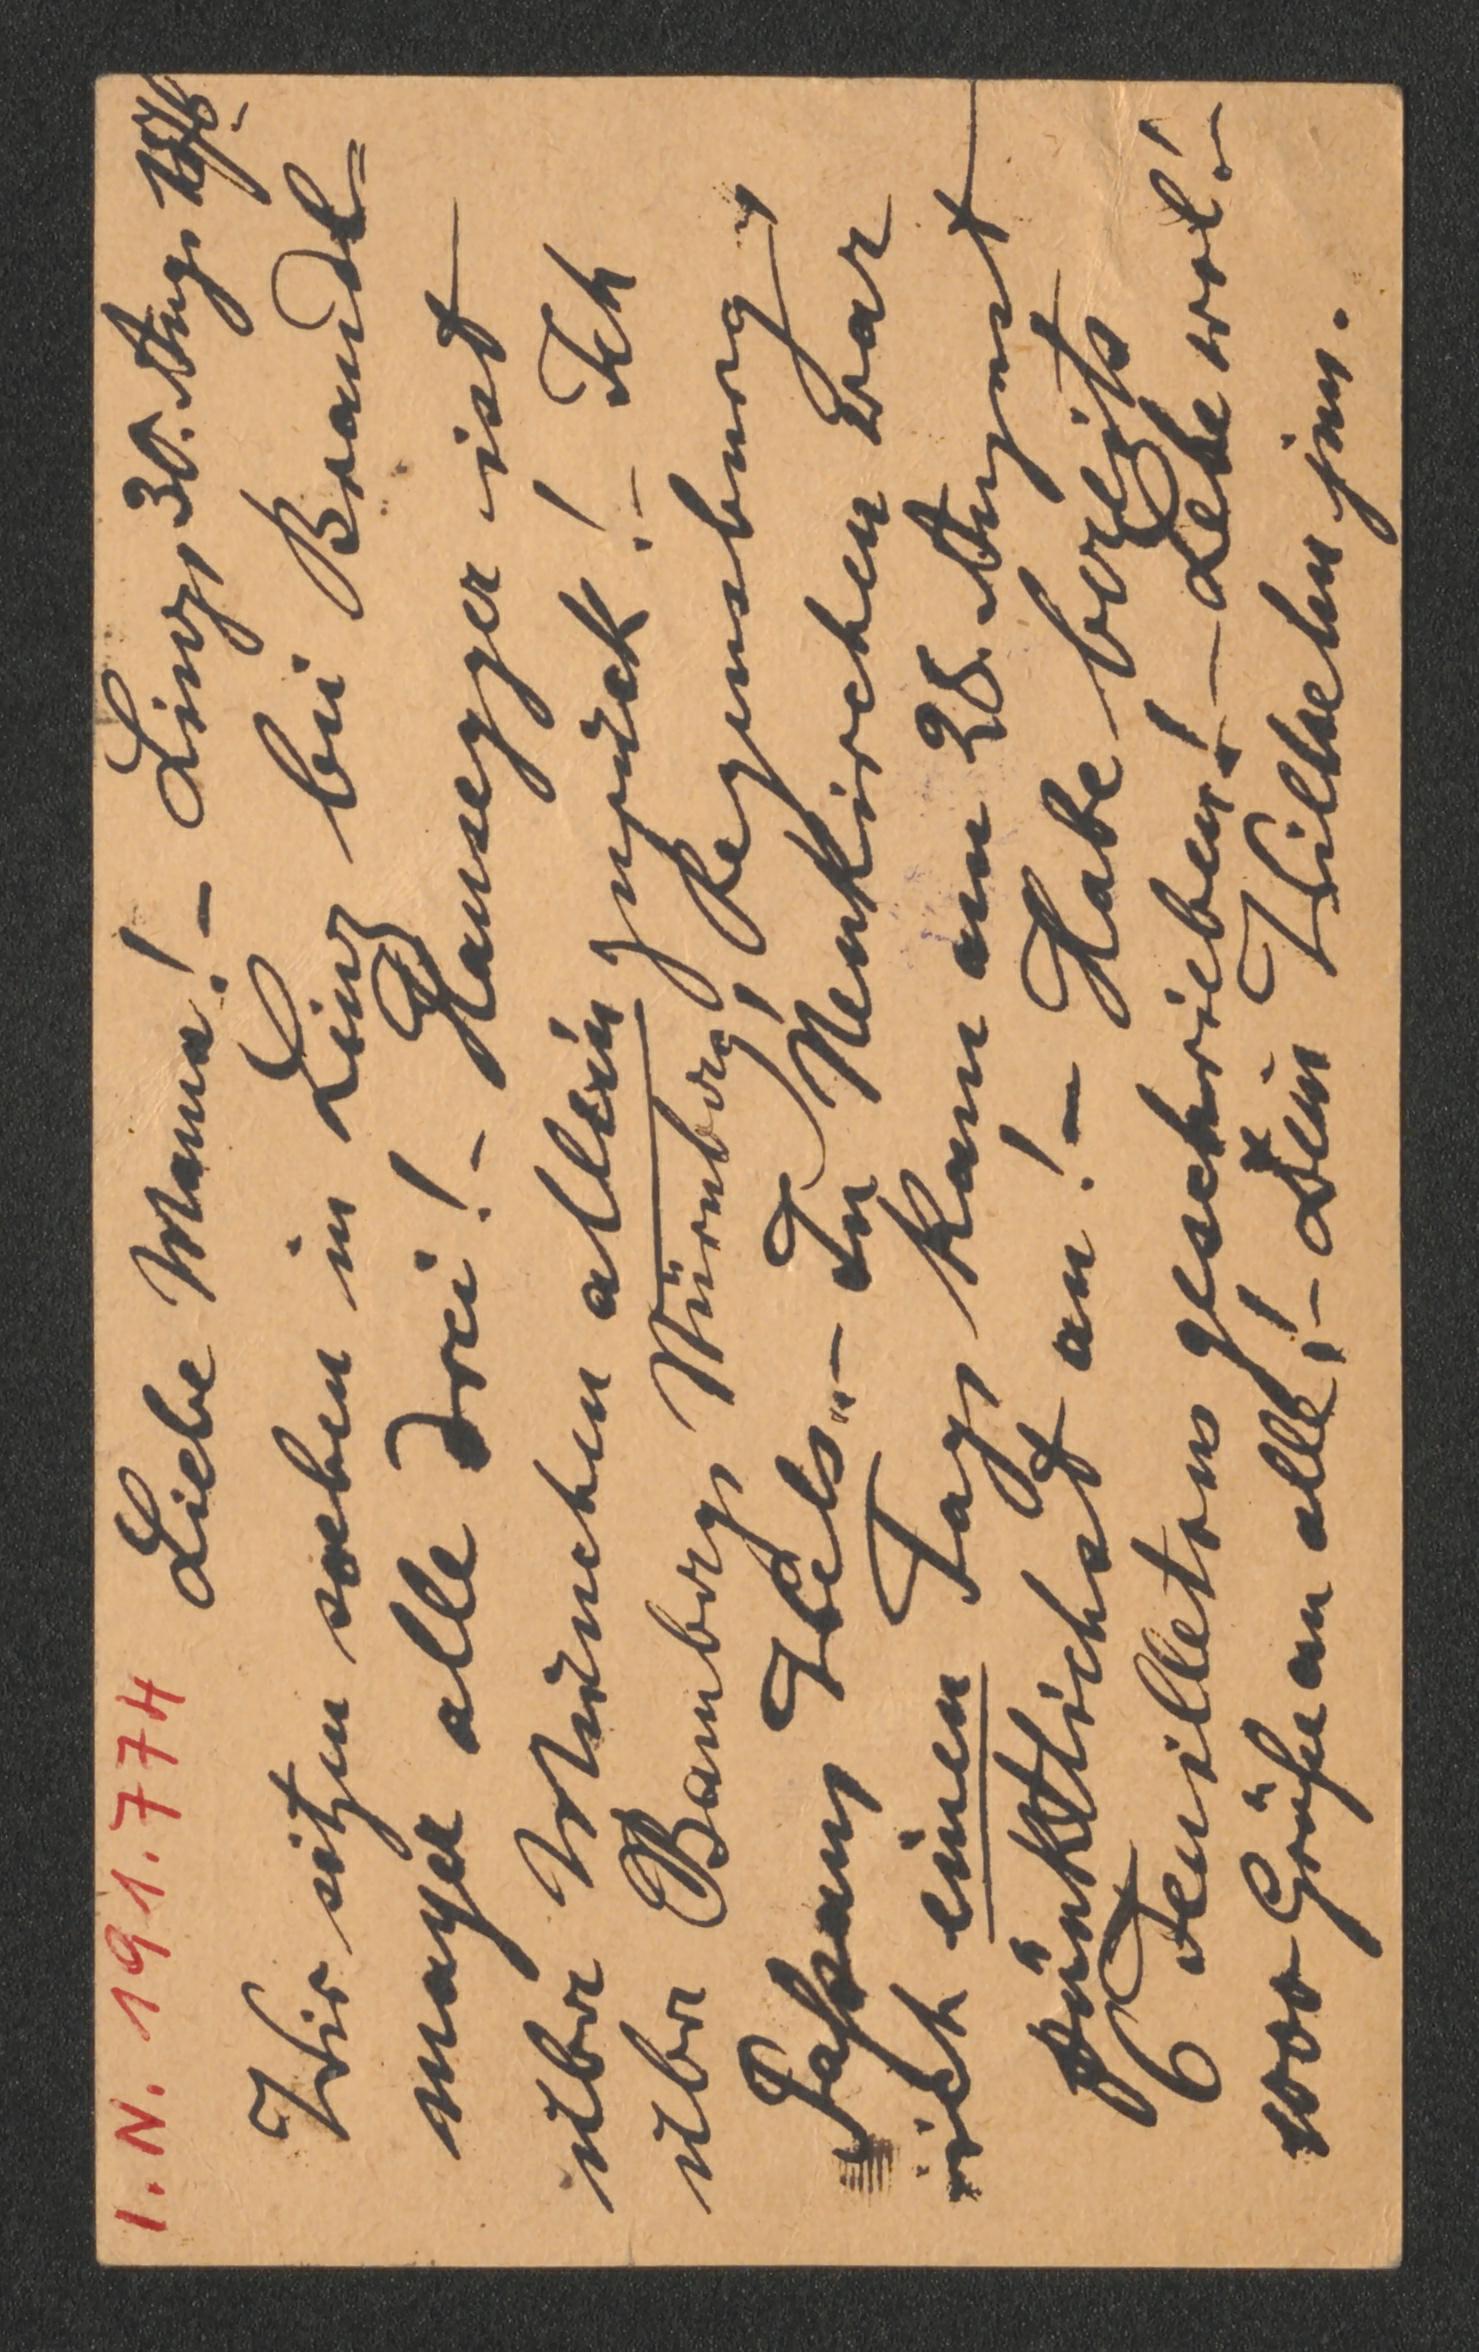 I. N. 191.774
Liebe Mama! – Linz, 30. Aug. 1876
Wir sitzen soeben in Linz bei Brandl=
mayer alle drei! – Hausegger ist
über München allein zurück! – Ich
über Bamberg, Nürnberg, Regensburg,
Passau, Wels. – In Neukirchen war
ich einen Tag, kam am 28. August
pünktlichst an! – Habe bereits
6 Feuilletons geschrieben! – Lebe wol! –
1000 Grüße an alle! – Dein Wilhelm jun.